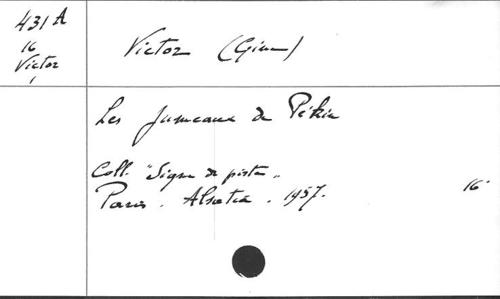 431 A
16
Victor
1
Victor (Gine)
Les Jumeaux de Pékin
Coll. "Signe de piste"
Paris. Alsatia. 1957.
16°